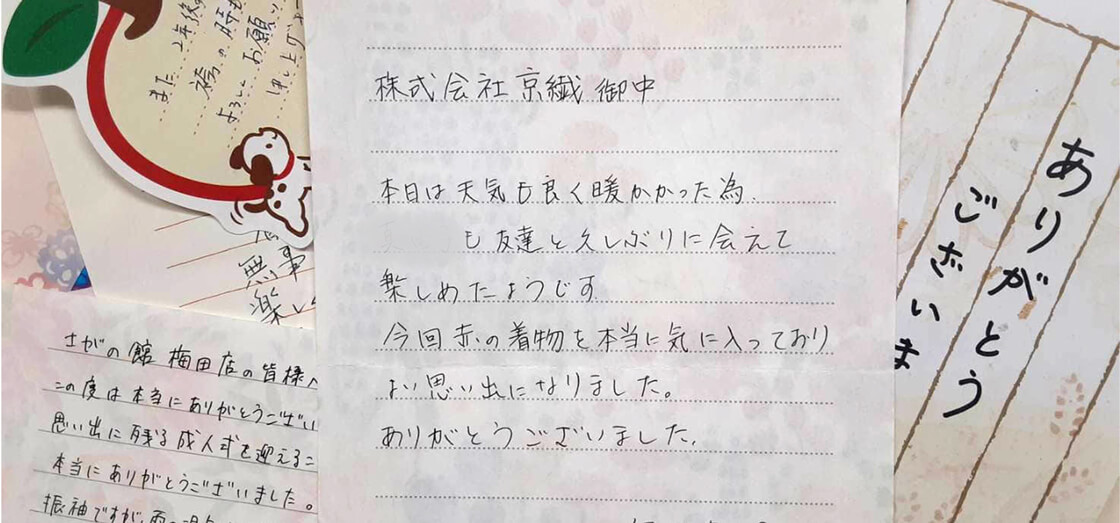 株式会社京繊御中
本日は天気も良く暖かかった為、
も友達と久しぶりに会えて
楽しめたようです
今回赤の着物を本当に気に入っており
よい思い出になりました。
ありがとうございました。
また2年後の
袴の時も
よろしくお願い
申し上げ
無事
楽し
さがの館 梅田店の皆様へ
この度は本当にありがとうござい
思い出に残る成人式を迎えるこ
本当にありがとうございました。
振袖ですが、雨
ありがとう
ございま